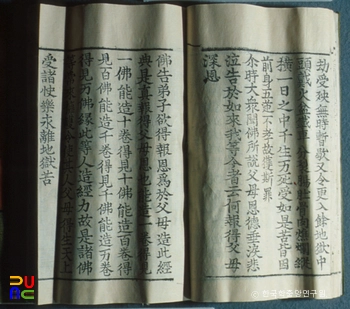 劫受殃無時暫歇又令更入餘地獄中
頭戴火
橫一日之中千生万死受如是苦皆因
前身五逆不孝故獲斯罪
尒時大衆聞佛所說父母恩德垂淚悲
泣告於如來我等今者云何報得父母
深恩
佛告弟子欲得報恩爲於父母造此經
典是眞報得父母恩也能造一卷得見
一佛能造十卷得見十佛能造百卷得
見百佛能造千卷得見千佛能造万卷
得見万佛緣此等人造經力故是諸佛
人父母得生天上
受諸快樂永離地獄苦